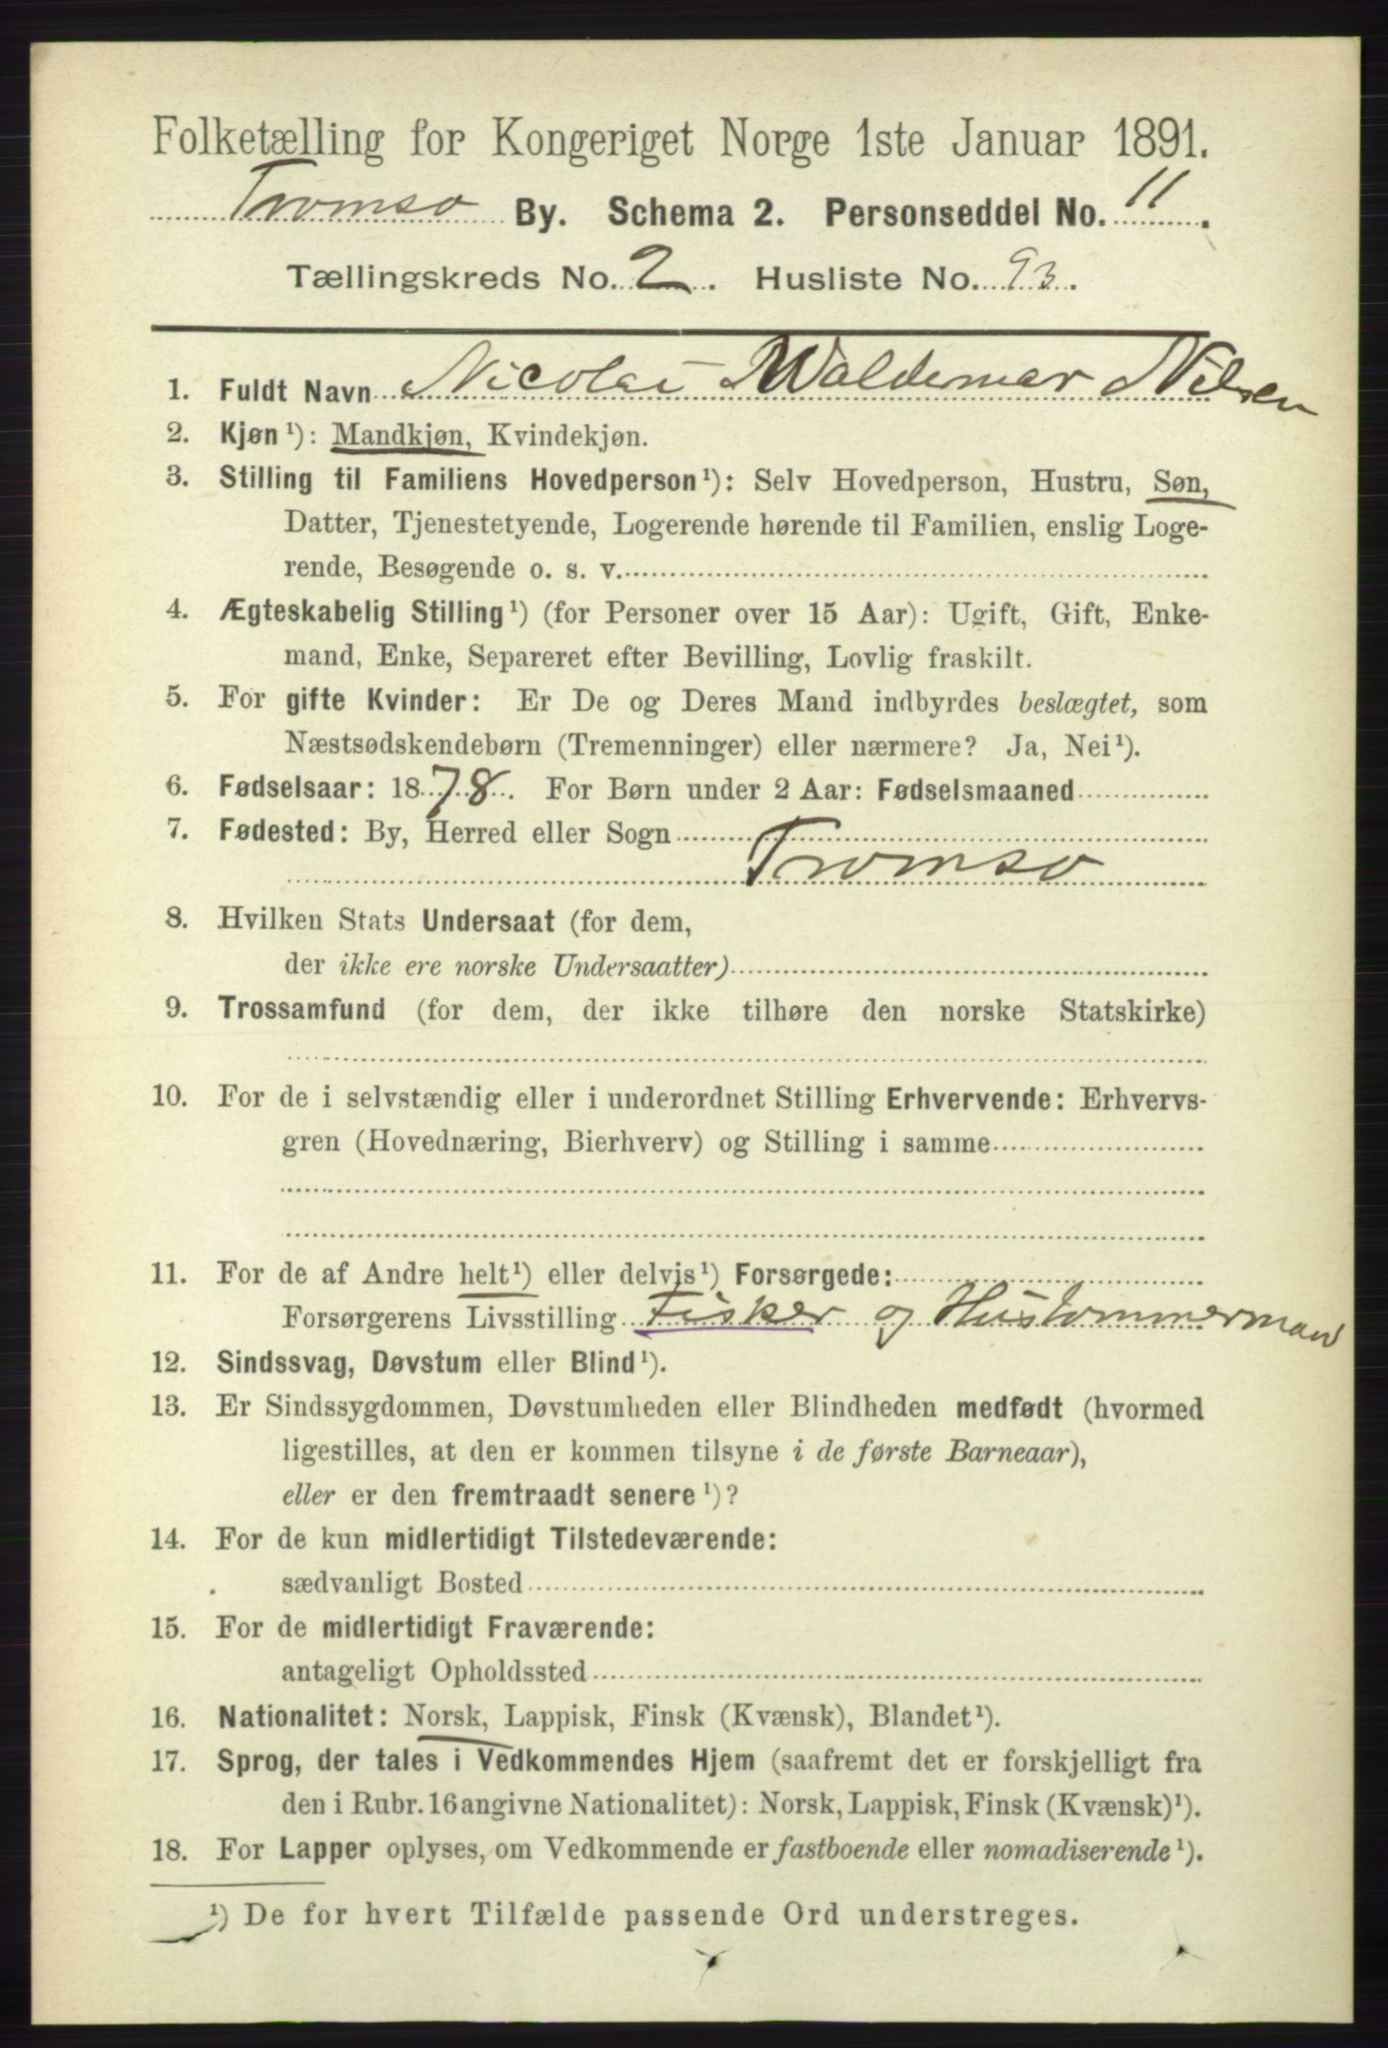 Folketælling for Kongeriget Norge 1ste Januar 1891.
Tromsø By. Schema 2. Personseddel No. 11.
Tællingskreds No. 2. Husliste No. 93.
1. Fuldt Navn Nicolai Waldemar Nilsen
2. Kjøn¹): Mandkjøn, Kvindekjøn.
3. Stilling til Familiens Hovedperson¹): Selv Hovedperson, Hustru, Søn,
Datter, Tjenestetyende, Logerende hørende til Familien, enslig Loge-
rende, Besøgende o. s. v.
4. Ægteskabelig Stilling¹) (for Personer over 15 Aar): Ugift, Gift, Enke-
mand, Enke, Separeret efter Bevilling, Lovlig fraskilt.
5. For gifte Kvinder: Er De og Deres Mand indbyrdes beslægtet, som
Næstsødskendebørn (Tremenninger) eller nærmere? Ja, Nei¹).
6. Fødselsaar: 1878. For Børn under 2 Aar: Fødselsmaaned
7. Fødested: By, Herred eller Sogn
Tromsø
8. Hvilken Stats Undersaat (for dem,
der ikke ere norske Undersaatter)
9. Trossamfund (for dem, der ikke tilhøre den norske Statskirke)
10. For de i selvstændig eller i underordnet Stilling Erhvervende: Erhvervs-
gren (Hovednæring, Bierhverv) og Stilling i samme
11. For de af Andre helt¹) eller delvis¹) Forsørgede:
Forsørgerens Livsstilling Fisker og Hustømmermand
12. Sindssvag, Døvstum eller Blind¹).
13. Er Sindssygdommen, Døvstumheden eller Blindheden medfødt (hvormed
ligestilles, at den er kommen tilsyne i de første Barneaar),
eller er den fremtraadt senere¹)?
14. For de kun midlertidigt Tilstedeværende:
sædvanligt Bosted
15. For de midlertidigt Fraværende:
antageligt Opholdssted
16. Nationalitet: Norsk, Lappisk, Finsk (Kvænsk), Blandet¹).
17. Sprog, der tales i Vedkommendes Hjem (saafremt det er forskjelligt fra
den i Rubr. 16 angivne Nationalitet): Norsk, Lappisk, Finsk (Kvænsk)¹).
18. For Lapper oplyses, om Vedkommende er fastboende eller nomadiserende¹).
¹) De for hvert Tilfælde passende Ord understreges.